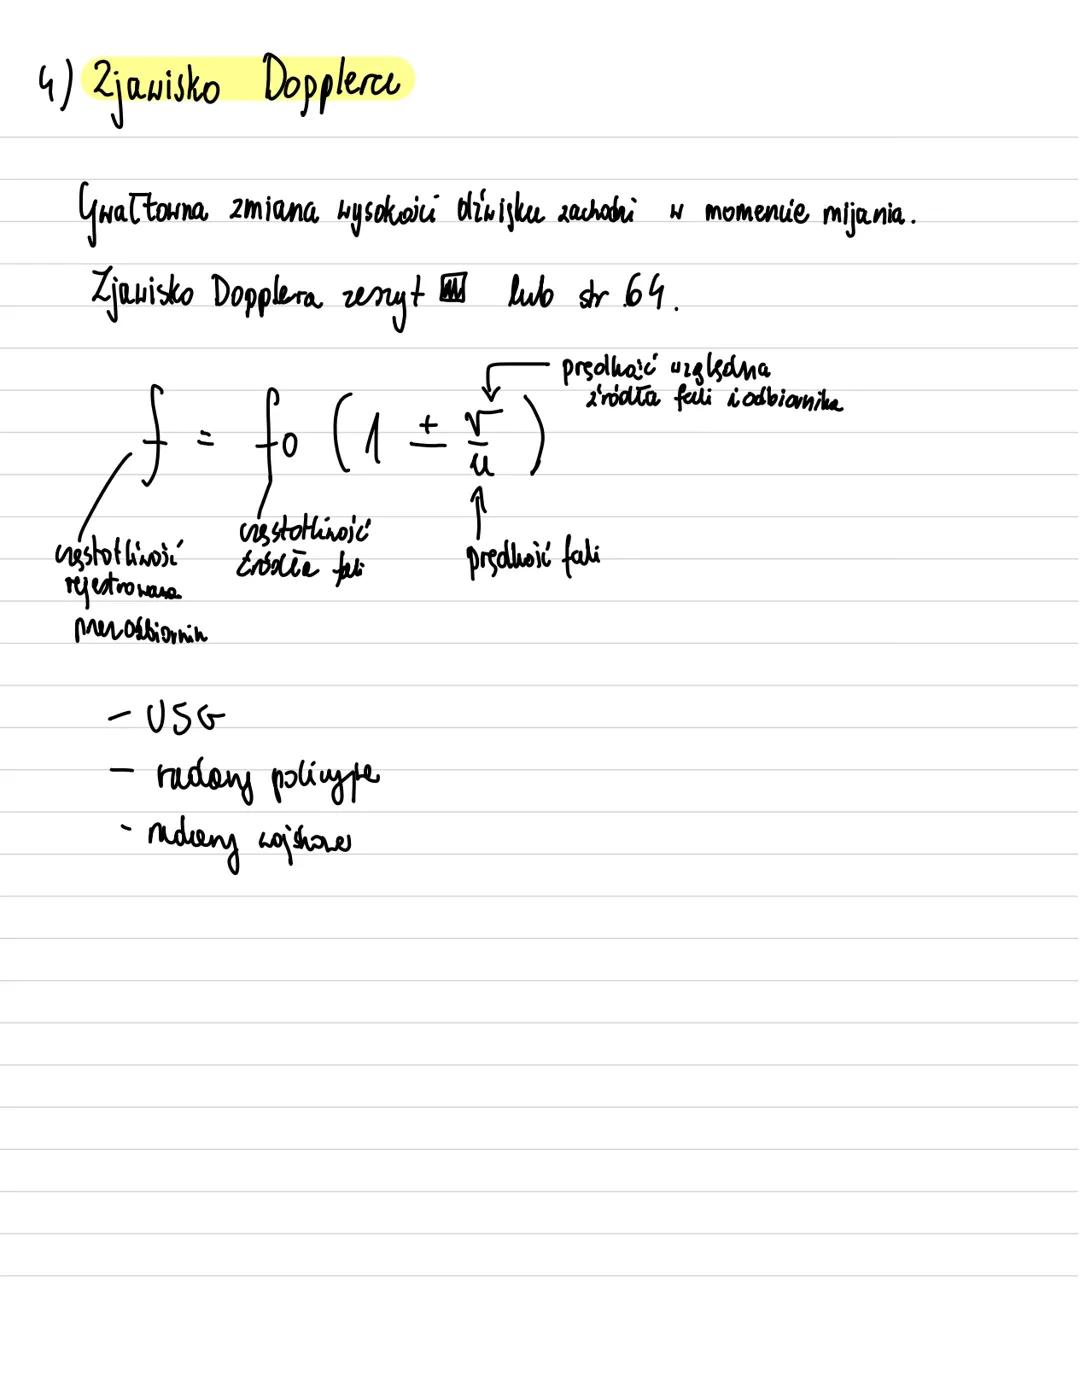 4) Zjawisko Dopplera
Gwałtowna zmiana wysokości dźwięku zachodzi w momencie mijania.
Zjawisko Dopplera zeszyt lub str 64.
prędkość względna
źródła fali i odbiornika
f = f0 (1 ± v/u)
częstotliwość
źródła fali
prędkość fali
częstotliwość
rejestrowana
przez odbiornik
- USG
- radary policyjne
- radary wojskowe